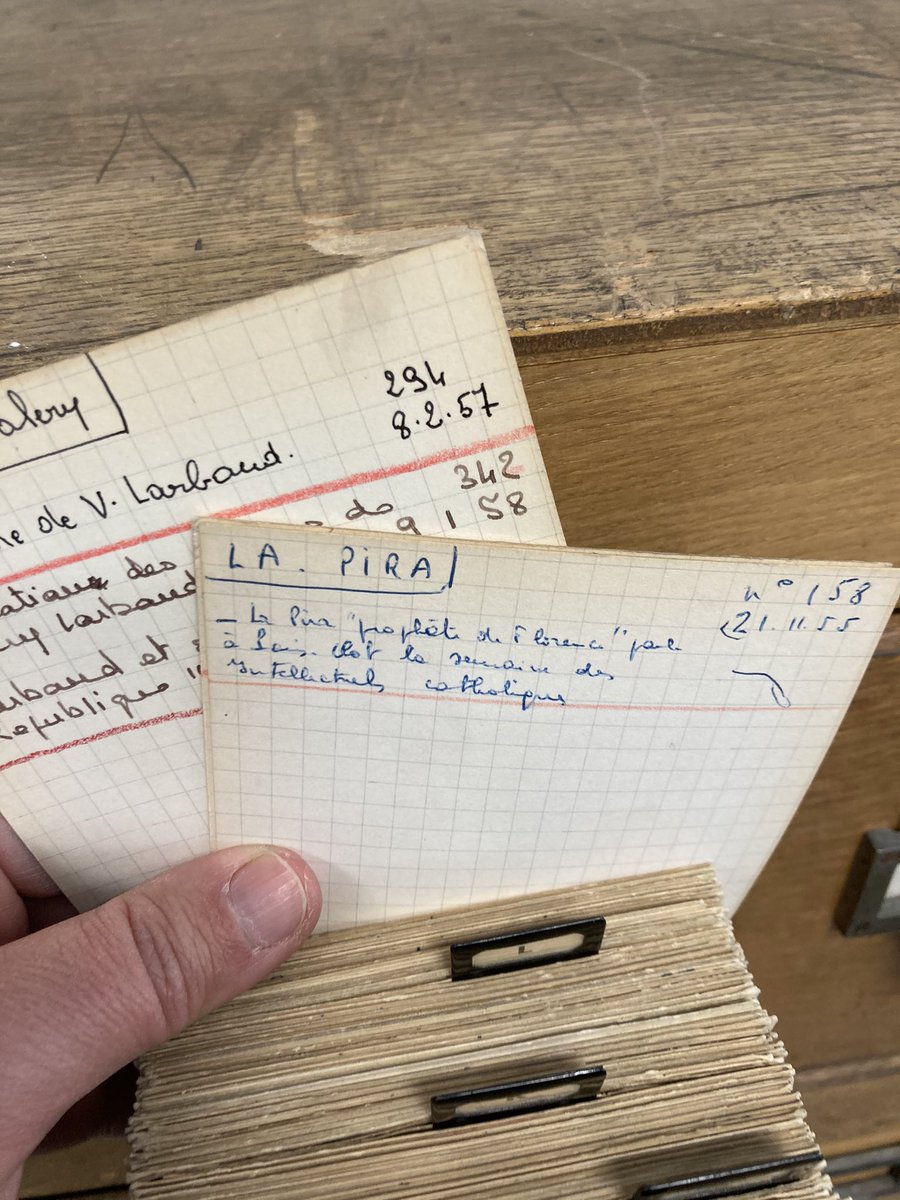 alery
294
8.2.57
de V. Larbaud.
342
des
Larbaud
9 1 58
baud et
République
LA. PIRA
n° 158
21.11.55
— La Pira "prophète de Florence" parle
à Paris. Clôt la semaine des
Intellectuels catholiques